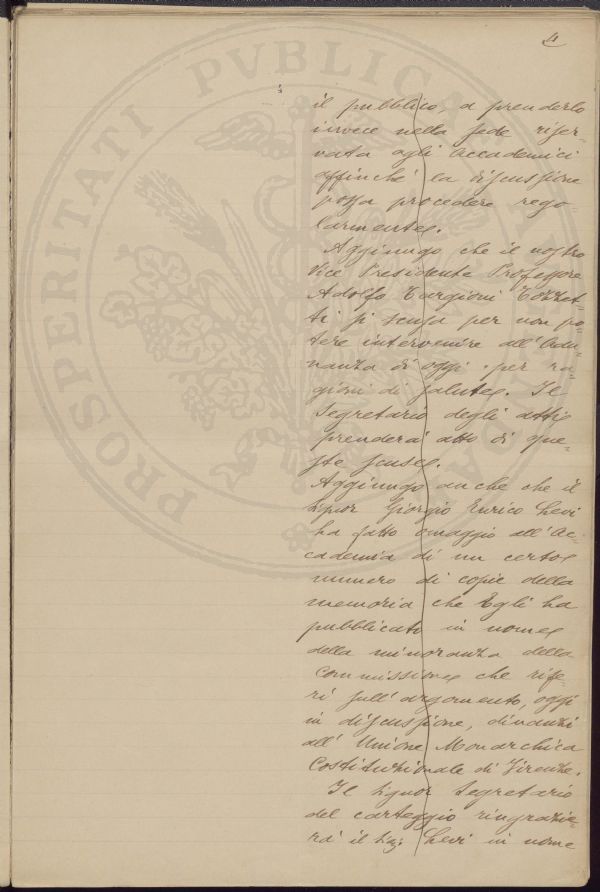 4
il pubblico, a prenderlo
invece nella sede riser-
vata agli Accademici
affinchè la discussione
possa procedere rego-
larmente.
Aggiungo che il nostro
Vice Presidente Professore
Adolfo Targioni Tozzet-
ti si scusa per non po-
tere intervenire all'Adu-
nanza di oggi per ra-
gioni di salute. Il
Segretario degli atti
prenderà atto di que-
ste scuse.
Aggiungo anche che il
Signor Giorgio Enrico Levi
ha fatto omaggio all'Ac-
cademia di un certo
numero di copie della
memoria che Egli ha
pubblicato in nome
della minoranza della
Commissione che rife-
rì sull'argomento, oggi
in discussione, dinanzi
all'Unione Monarchica
Costituzionale di Firenze.
Il Signor Segretario
del carteggio ringrazie-
rà il Sig: Levi in nome
PROSPERITATI PVBLICAE